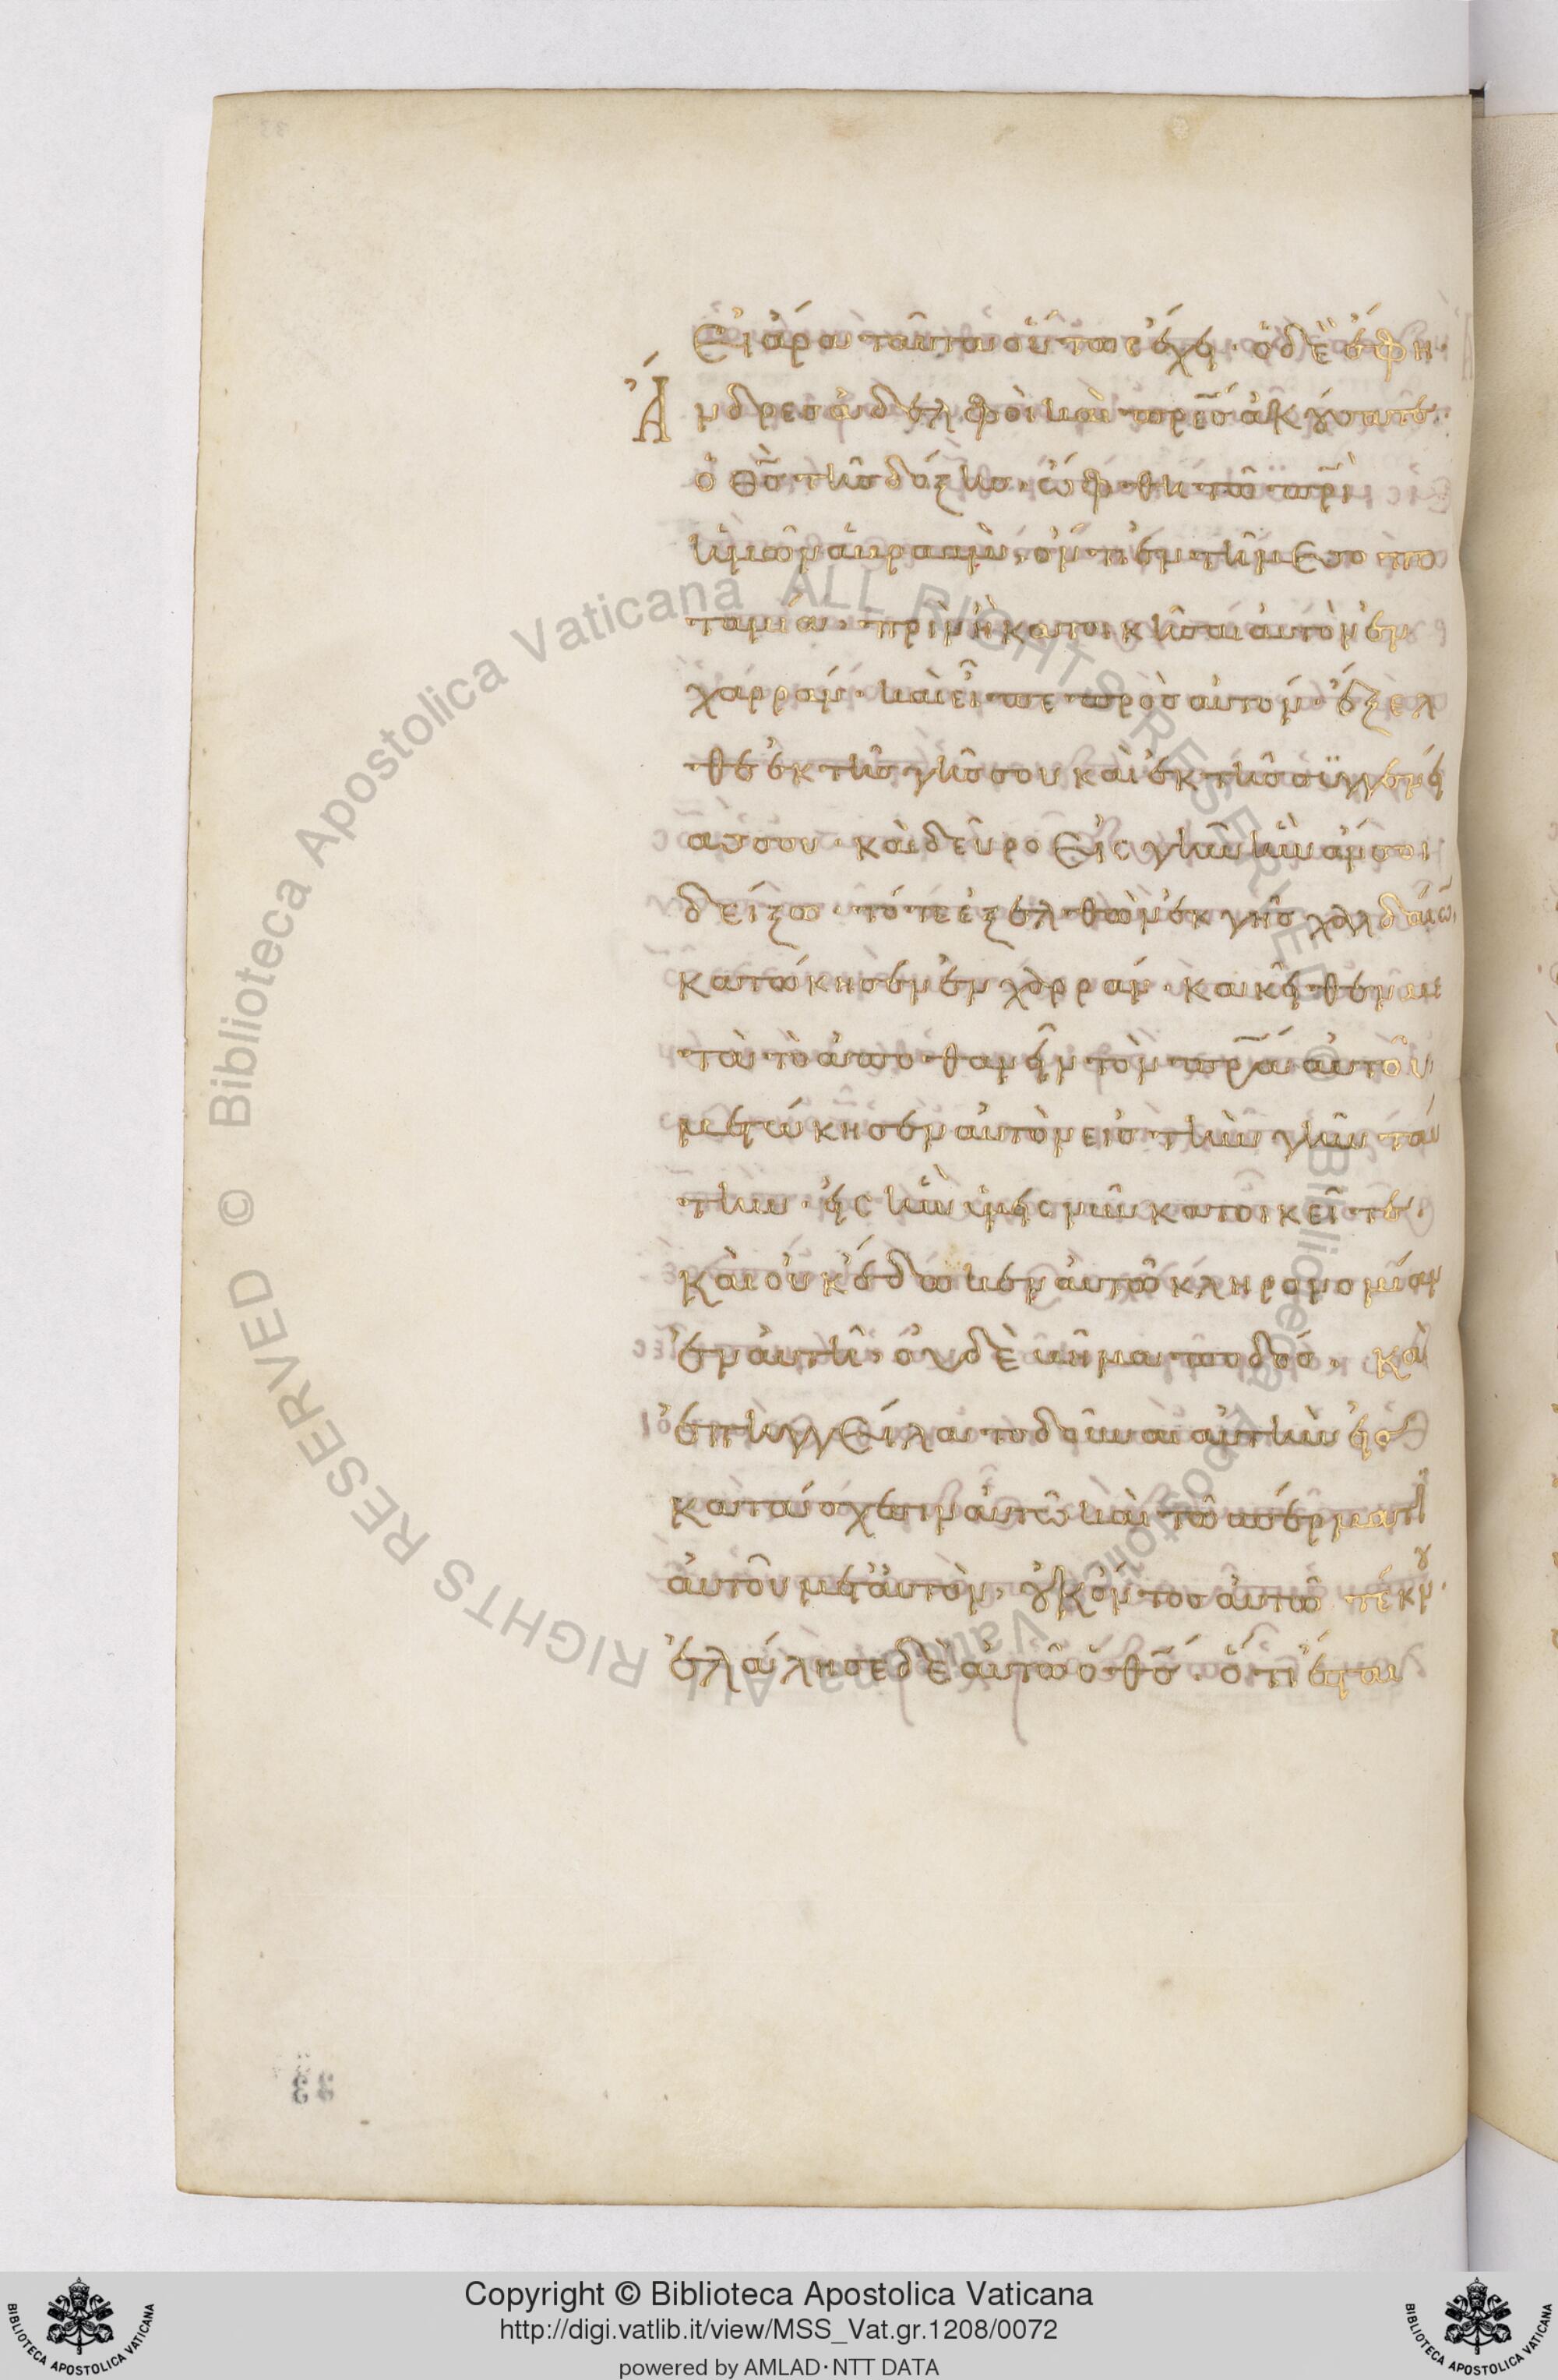 Εἰ ἄρα ταῦτα οὕτως ἔχει· ὁ δὲ ἔφη·
Ἄνδρες ἀδελφοὶ καὶ π̅ρ̅ε̅ς ἀκούσατε·
ὁ θ̅ς̅ τῆς δόξης ὤφθη τῶ π̅ρ̅ι̅
ἡμῶν ἀβραὰμ, ὄντι ἐν τῆ μεσοπο
ταμία· πρὶν ἢ κατοικῆσαι αὐτὸν ἐν
χαρράν· καὶ εἶπε πρὸς αὐτόν· ἔξελ
θε ἐκ τῆς γῆς σου καὶ ἐκ τῆς συγγενεί
ας σου· καὶ δεῦρο εἰς γῆν ἣν ἄν σοι
δείξω· τότε ἐξελθὼν ἐκ γῆς χαλδαίων,
κατώκησεν ἐν χαρράν· κακεῖθεν με
τὰ τὸ ἀποθανεῖν τὸν π̅ρ̅α̅ αὐτοῦ,
μετώκησεν αὐτὸν εἰς τὴν γῆν ταύ
την· εἰς ἣν ὑμεῖς νῦν κατοικεῖτε·
καὶ οὐκ ἔδωκεν αὐτῶ κληρονομίαν
ἐν αὐτῆ, οὐδὲ βῆμα ποδός, καὶ
ἐπηγγείλατο δοῦναι αὐτὴν εἰς
κατάσχεσιν αὐτῶ καὶ τῶ σπέρματι
αὐτοῦ μετ' αὐτὸν, οὐκ ὄντος αὐτῶ τέκνου·
ἐλάλησε δὲ αὐτῶ ὁ θ̅ς̅· ὅτι ἔσται
Copyright © Biblioteca Apostolica Vaticana
http://digi.vatlib.it/view/MSS_Vat.gr.1208/0072
powered by AMLAD·NTT DATA
BIBLIOTECA APOSTOLICA VATICANA
BIBLIOTECA APOSTOLICA VATICANA
© Biblioteca Apostolica Vaticana ALL RIGHTS RESERVED © Biblioteca Apostolica Vaticana ALL RIGHTS RESERVED
33